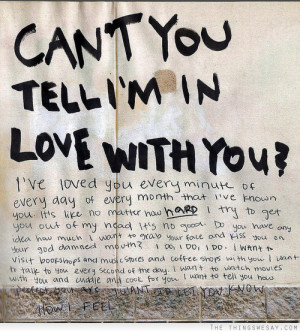 CAN'T YOU
TELL I'M IN
LOVE WITH YOU?
I've loved you every minute of
every day of every month that I've known
you. It's like no matter how HARD I try to get
you out of my head It's no good. Do you have any
idea how much I want to grab your face and kiss you on
your god damned mouth? I DO, I DO, I DO. I want to
visit bookshops and music stores and coffee shops with you. I want
to talk to you every second of the day. I want to watch movies
with you and cuddle and cook for you. I want to tell you how
perfect you are. I WANT to LET YOU KNOW
HOW I FEEL
© WWW.THETHINGSWESAY.COM